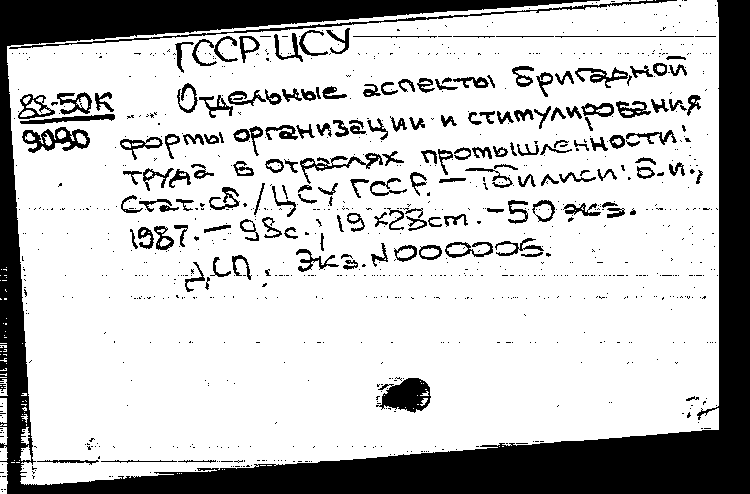 ГССР. ЦСУ
88-50К
9090
Отдельные аспекты бригадной
формы организации и стимулирования
труда в отраслях промышленности:
Стат. сб. / ЦСУ ГССР. — Тбилиси: Б.и.,
1987. — 98с.; 19×28ст. — 50 экз.
ДСП. Экз. N000006.